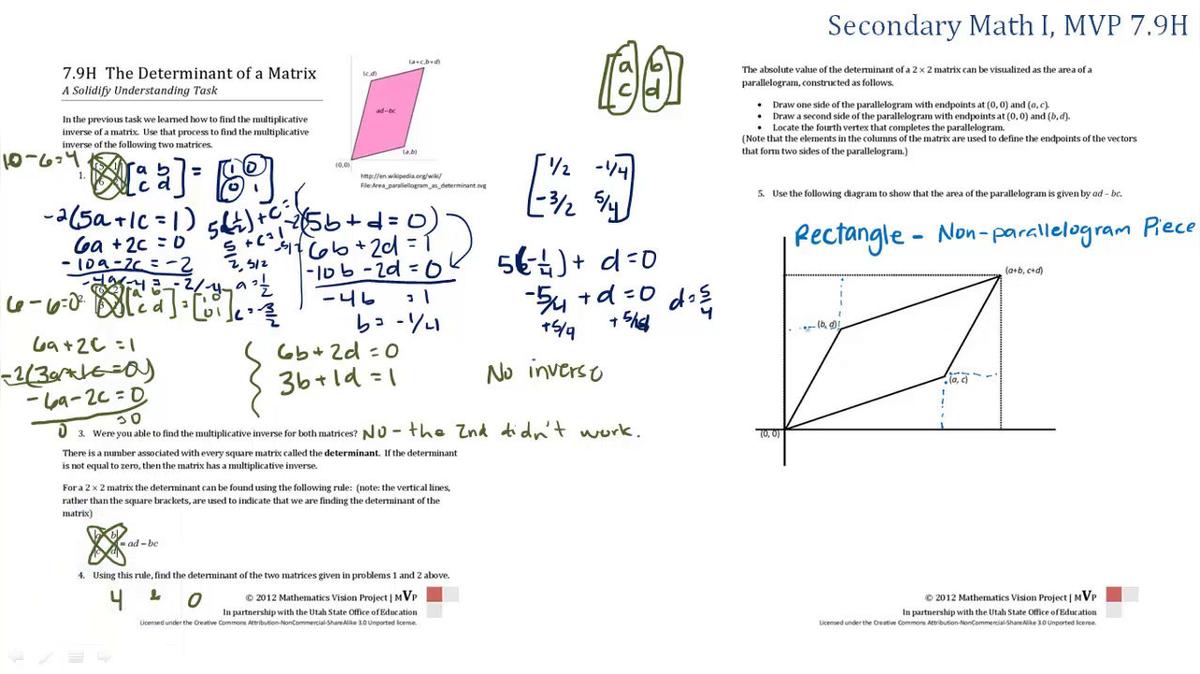 Secondary Math I, MVP 7.9H
7.9H The Determinant of a Matrix
A Solidify Understanding Task
In the previous task we learned how to find the multiplicative
inverse of a matrix. Use that process to find the multiplicative
inverse of the following two matrices.
(c,d)
(a+c,b+d)
ad-bc
(a,b)
(0,0)
http://en.wikipedia.org/wiki/
File:Area_parallellogram_as_determinant.svg
[a b
c d]
10-6=4
1. [a b
c d] = [1 0
0 1]
-2(5a+1c=1)
6a+2c=0
-10a-2c=-2
5(1/2)+c=1
5/2+c=1
a=1/2
c=-3/2
-2(5b+d=0)
6b+2d=1
-10b-2d=0
-4b =1
b=-1/4
[1/2 -1/4
-3/2 5/4]
5(-1/4)+d=0
-5/4+d=0 d=5/4
6-6=0
2. [a b
c d] = [1 0
0 1]
6a+2c=1
-6a-2c=0
6b+2d=0
3b+1d=1
No inverse
3. Were you able to find the multiplicative inverse for both matrices? No - the 2nd didn't work.
There is a number associated with every square matrix called the determinant. If the determinant
is not equal to zero, then the matrix has a multiplicative inverse.
For a 2 × 2 matrix the determinant can be found using the following rule: (note: the vertical lines,
rather than the square brackets, are used to indicate that we are finding the determinant of the
matrix)
= ad - bc
4. Using this rule, find the determinant of the two matrices given in problems 1 and 2 above.
4 & 0
© 2012 Mathematics Vision Project | MVP
In partnership with the Utah State Office of Education
Licensed under the Creative Commons Attribution-NonCommercial-ShareAlike 3.0 Unported license.
The absolute value of the determinant of a 2 × 2 matrix can be visualized as the area of a
parallelogram, constructed as follows.
• Draw one side of the parallelogram with endpoints at (0, 0) and (a, c).
• Draw a second side of the parallelogram with endpoints at (0, 0) and (b, d).
• Locate the fourth vertex that completes the parallelogram.
(Note that the elements in the columns of the matrix are used to define the endpoints of the vectors
that form two sides of the parallelogram.)
5. Use the following diagram to show that the area of the parallelogram is given by ad - bc.
Rectangle - Non-parallelogram Piece
(a+b, c+d)
(b, d)
(a, c)
(0, 0)
© 2012 Mathematics Vision Project | MVP
In partnership with the Utah State Office of Education
Licensed under the Creative Commons Attribution-NonCommercial-ShareAlike 3.0 Unported license.